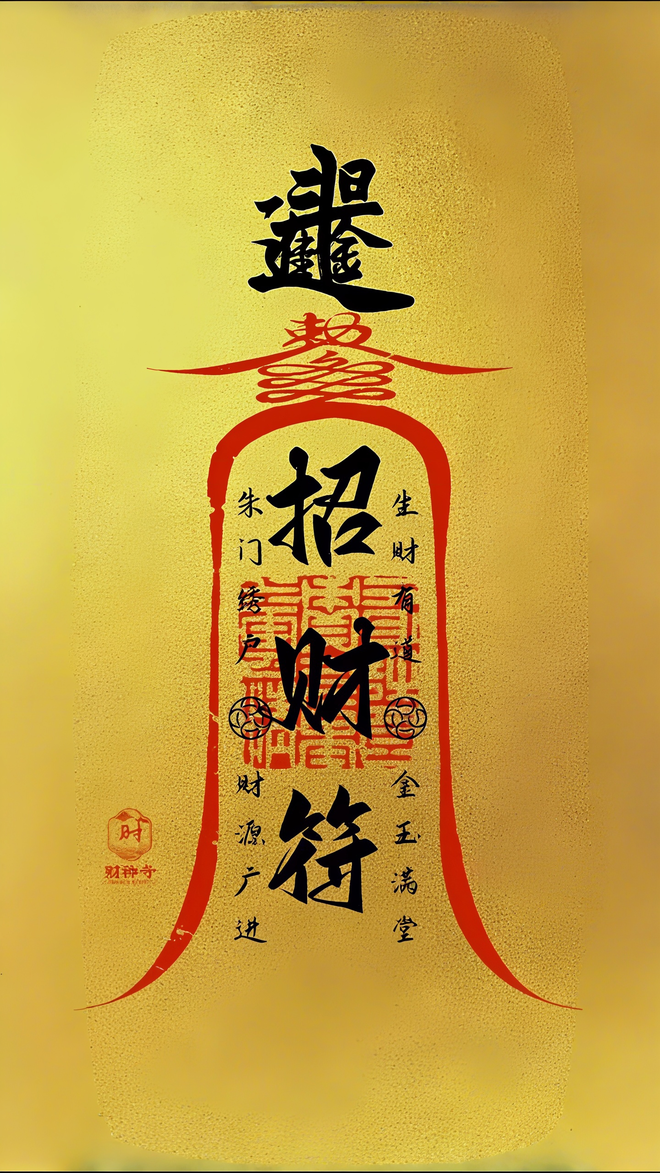 敕
招财符
生财有道
金玉满堂
朱门绣户
财源广进
财
财神寺